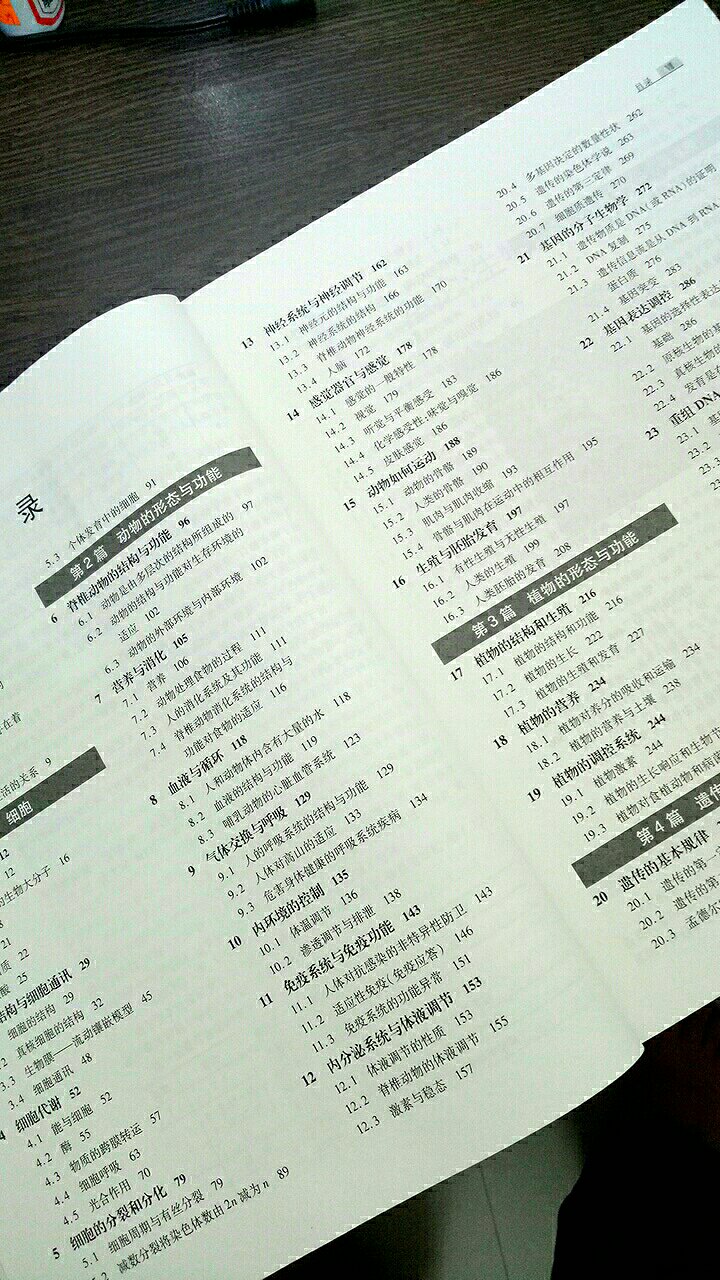 录
在着
活的关系 9
细胞
12
12
的生物大分子 16
21
质 22
酸 25
结构与细胞通讯 29
细胞的结构 29
真核细胞的结构 32
3.3 生物膜——流动镶嵌模型 45
3.4 细胞通讯 48
4 细胞代谢 52
4.1 能与细胞 52
4.2 酶 55
4.3 物质的跨膜转运 57
4.4 细胞呼吸 63
4.5 光合作用 70
5 细胞的分裂和分化 79
5.1 细胞周期与有丝分裂 79
5.2 减数分裂将染色体数由2n减为n 89
5.3 个体发育中的细胞 91
第2篇 动物的形态与功能
6 脊椎动物的结构与功能 96
6.1 动物是由多层次的结构所组成的 97
6.2 动物的结构与功能对生存环境的
适应 102
6.3 动物的外部环境与内部环境 102
7 营养与消化 105
7.1 营养 106
7.2 动物处理食物的过程 111
7.3 人的消化系统及其功能 111
7.4 脊椎动物消化系统的结构与
功能对食物的适应 116
8 血液与循环 118
8.1 人和动物体内含有大量的水 118
8.2 血液的结构与功能 119
8.3 哺乳动物的心脏血管系统 123
9 气体交换与呼吸 129
9.1 人的呼吸系统的结构与功能 129
9.2 人体对高山的适应 133
9.3 危害身体健康的呼吸系统疾病 134
10 内环境的控制 135
10.1 体温调节 136
10.2 渗透调节与排泄 138
11 免疫系统与免疫功能 143
11.1 人体对抗感染的非特异性防卫 143
11.2 适应性免疫(免疫应答) 146
11.3 免疫系统的功能异常 151
12 内分泌系统与体液调节 153
12.1 体液调节的性质 153
12.2 脊椎动物的体液调节 155
12.3 激素与稳态 157
目录
13 神经系统与神经调节 162
13.1 神经元的结构与功能 163
13.2 神经系统的结构 166
13.3 脊椎动物神经系统的功能 170
13.4 人脑 172
14 感觉器官与感觉 178
14.1 感觉的一般特性 178
14.2 视觉 179
14.3 听觉与平衡感受 183
14.4 化学感受性:味觉与嗅觉 186
14.5 皮肤感觉 186
15 动物如何运动 188
15.1 动物的骨骼 189
15.2 人类的骨骼 190
15.3 肌肉与肌肉收缩 193
15.4 骨骼与肌肉在运动中的相互作用 195
16 生殖与胚胎发育 197
16.1 有性生殖与无性生殖 197
16.2 人类的生殖 199
16.3 人类胚胎的发育 208
第3篇 植物的形态与功能
17 植物的结构和生殖 216
17.1 植物的结构和功能 216
17.2 植物的生长 222
17.3 植物的生殖和发育 227
18 植物的营养 234
18.1 植物对养分的吸收和运输 234
18.2 植物的营养与土壤 238
19 植物的调控系统 244
19.1 植物激素 244
19.2 植物的生长响应和生物节
19.3 植物对食植动物和病菌
第4篇 遗传
20 遗传的基本规律
20.1 遗传的第一
20.2 遗传的第
20.3 孟德尔
20.4 多基因决定的数量性状 262
20.5 遗传的染色体学说 263
20.6 遗传的第三定律 269
20.7 细胞质遗传 270
21 基因的分子生物学 272
21.1 遗传物质是DNA(或RNA)的证明
21.2 DNA复制 275
21.3 遗传信息流是从DNA到RNA
蛋白质 276
21.4 基因突变 283
22 基因表达调控 286
22.1 基因的选择性表达
基础 286
22.2 原核生物的
22.3 真核生物的
22.4 发育是在
23 重组DNA
23.1 基
23.2
23.